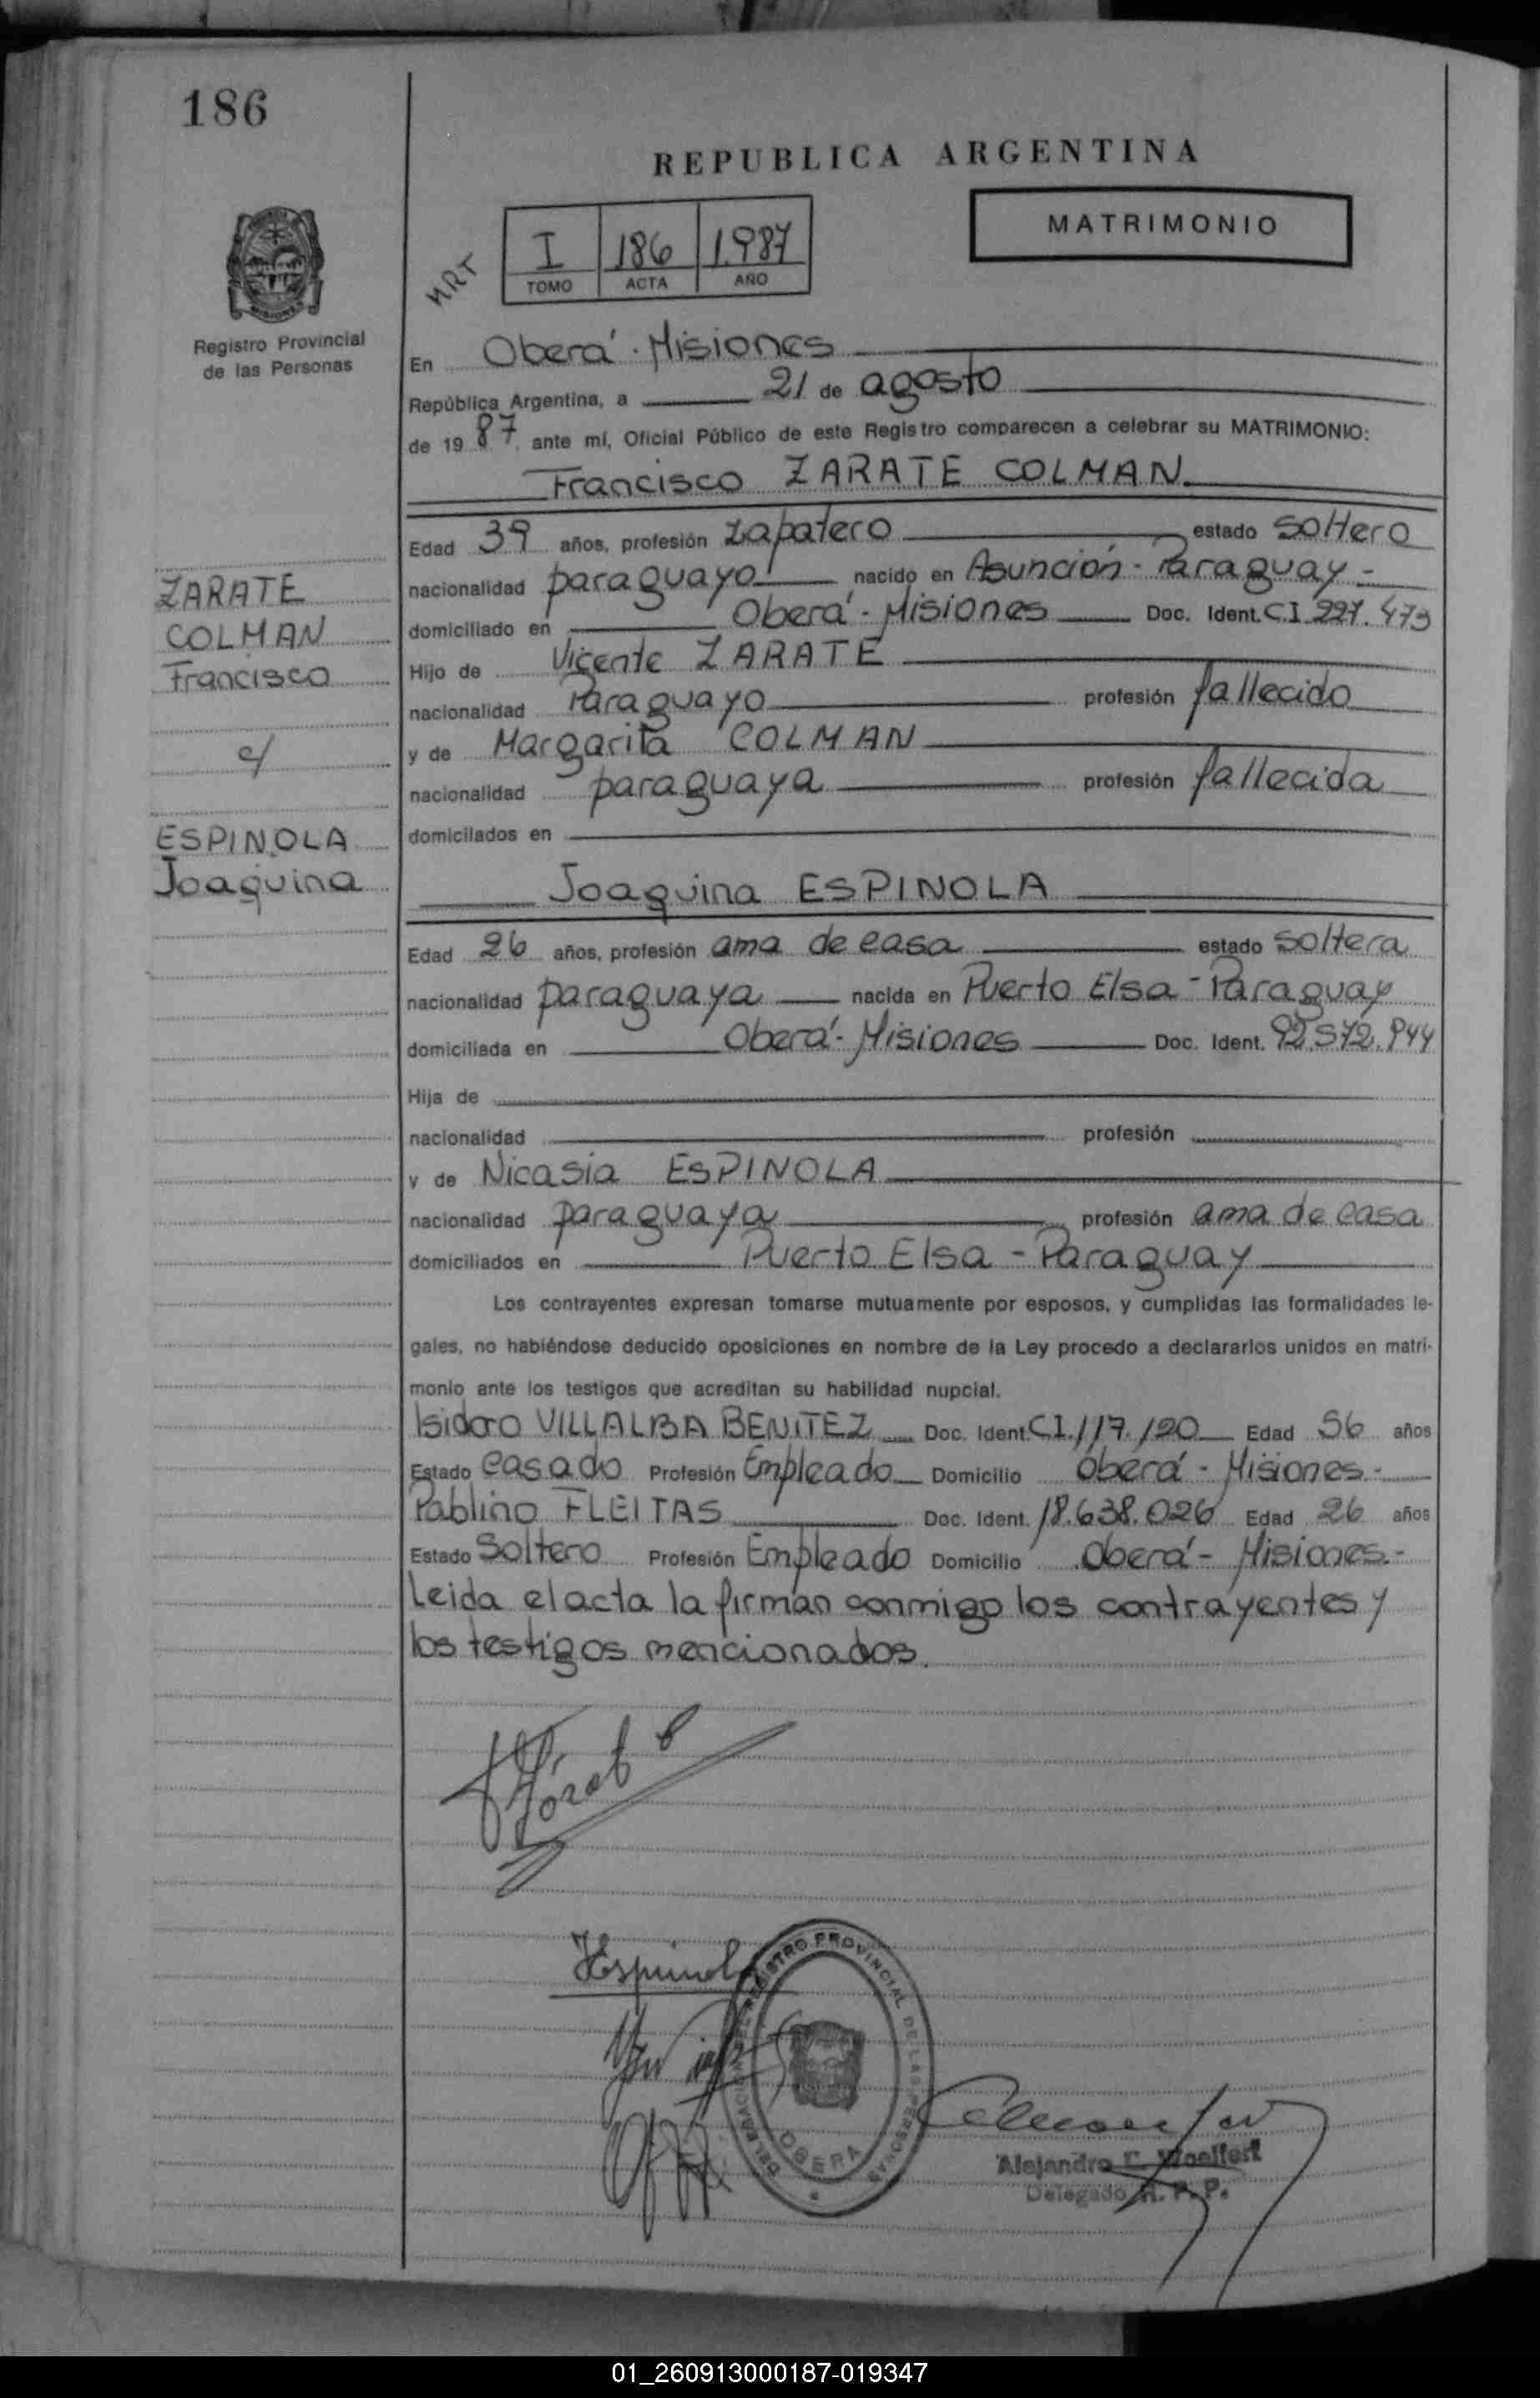 186
REPUBLICA ARGENTINA
MATRIMONIO
I 186 1.987
TOMO ACTA AÑO
MRT
Registro Provincial
de las Personas
En Oberá - Misiones
República Argentina, a 21 de agosto
de 19 87, ante mí, Oficial Público de este Registro comparecen a celebrar su MATRIMONIO:
Francisco ZARATE COLMAN
Edad 39 años, profesión zapatero estado soltero
nacionalidad paraguayo nacido en Asunción - Paraguay -
domiciliado en Oberá - Misiones Doc. Ident. C.I 227.473
Hijo de Vicente ZARATE
nacionalidad Paraguayo profesión fallecido
y de Margarita COLMAN
nacionalidad paraguaya profesión fallecida
domicilados en
ZARATE
COLMAN
Francisco
c/
ESPINOLA
Joaquina
Joaquina ESPINOLA
Edad 26 años, profesión ama de casa estado soltera
nacionalidad paraguaya nacida en Puerto Elsa - Paraguay
domiciliada en Oberá - Misiones Doc. Ident. 92.572.944
Hija de
nacionalidad profesión
y de Nicasia ESPINOLA
nacionalidad paraguaya profesión ama de casa
domiciliados en Puerto Elsa - Paraguay
Los contrayentes expresan tomarse mutuamente por esposos, y cumplidas las formalidades le-
gales, no habiéndose deducido oposiciones en nombre de la Ley procedo a declararlos unidos en matri-
monio ante los testigos que acreditan su habilidad nupcial.
Isidoro VILLALBA BENITEZ Doc. Ident. C.I. 117.120 Edad 56 años
Estado Casado Profesión Empleado Domicilio Oberá - Misiones -
Pablino FLEITAS Doc. Ident. 18.638.026 Edad 26 años
Estado Soltero Profesión Empleado Domicilio Oberá - Misiones -
Leida el acta la firman conmigo los contrayentes y
los testigos mencionados.
Espinola
DELEGACION DEL REGISTRO PROVINCIAL DE LAS PERSONAS
OBERA
Alejandro C. Woelfert
Delegado R. P. P.
01_260913000187-019347